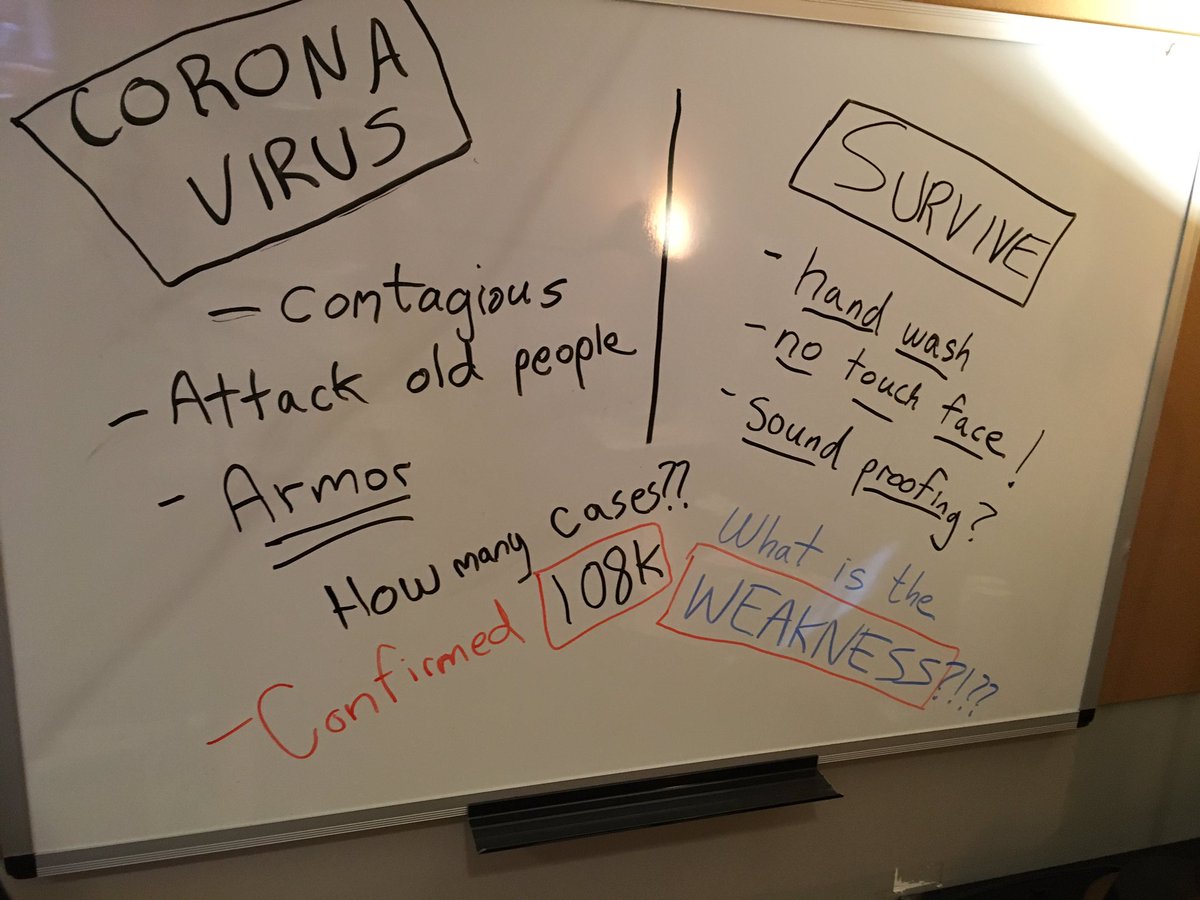 CORONA
VIRUS
- Contagious
- Attack old people
- Armor
How many cases??
- Confirmed 108K
SURVIVE
- hand wash
- no touch face!
- sound proofing?
What is the
WEAKNESS?!??